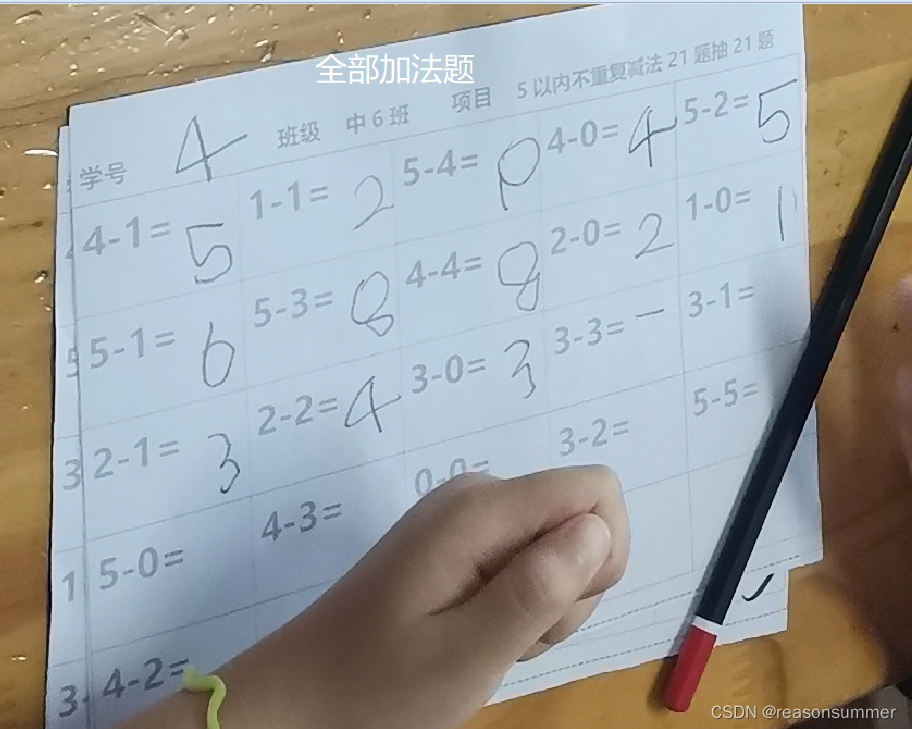 全部加法题
学号 4 班级 中6班 项目 5以内不重复减法21题抽21题
4-1= 5 1-1= 2 5-4= 4-0= 4 5-2= 5
5-1= 6 5-3= 8 4-4= 8 2-0= 2 1-0= 1
2-1= 3 2-2= 4 3-0= 3 3-3= - 3-1=
5-0= 4-3= 0-0= 3-2= 5-5=
4-2=
CSDN @reasonsummer